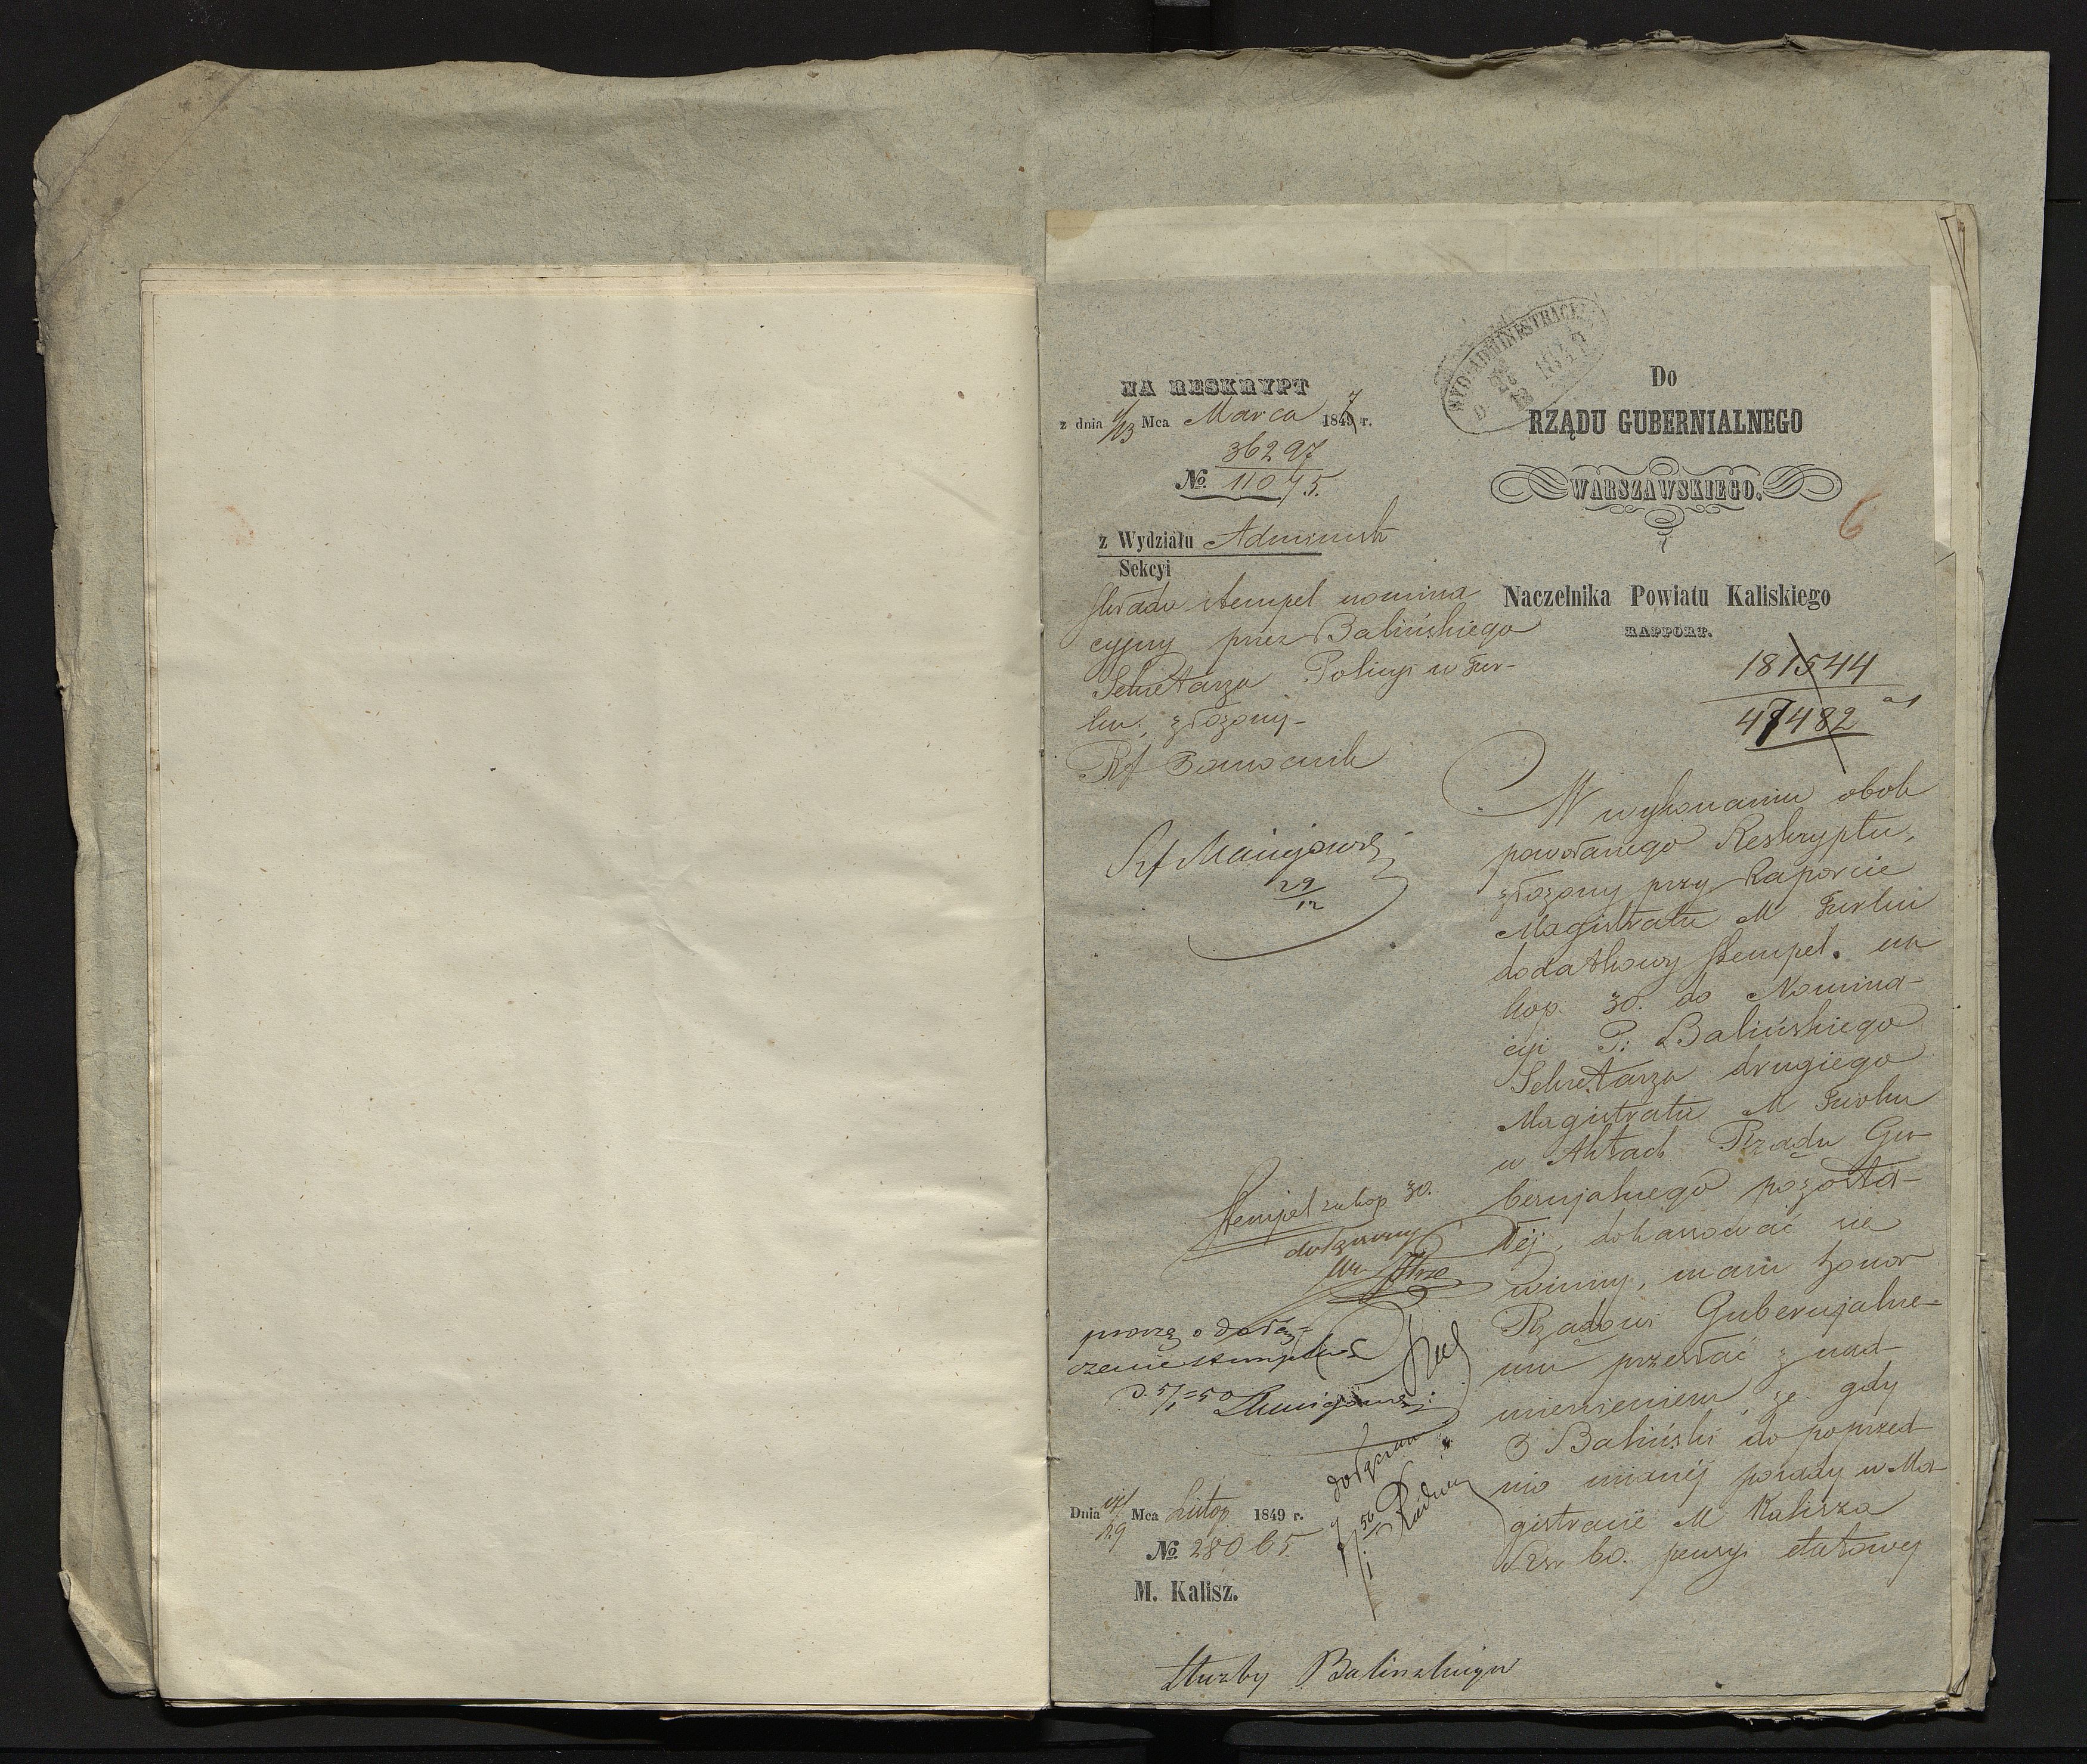 WYD. ADMINISTRACII
D 1849
NA RESKRYPT
z dnia 1/13 Mca Marca 1847 r.
36297
No. 11075.
z Wydziału Administr
Sekcyi
Składa stempel nomina
cyjny przez Balińskiego
Sekretarza Policyi w Tur-
ku, złożony-
Rf Pomocnik
Rf Maciejowski
29/12
Stempel na kop 30.
dołączony
proszę o dołą-
czenie stempla
d. 5/1 50
dołączam
7/1 50
Dnia 17/29 Mca Listop 1849 r.
No. 28065
M. Kalisz.
Do
RZĄDU GUBERNIALNEGO
WARSZAWSKIEGO.
6
Naczelnika Powiatu Kaliskiego
RAPPORT.
181544
47482
W wykonaniu obok
powołanego Reskryptu,
złożony przy Raporcie
Magistratu M Turku
dodatkowy stempel. na
kop. 30. do Nomina-
cyi P. Balińskiego
Sekretarza drugiego
Magistratu M Turku
w Aktach Rządu Gu-
bernjalnego pozosta-
łéj, dokassować się
winny, mam honor
Rządowi Gubernjalne-
mu przesłać z nad-
mienieniem że gdy
P Baliński do poprzed-
nio mianéj posady w Ma-
gistracie M Kalisza
Rsr 60. pensyi etatowej
Służby Balinskiego